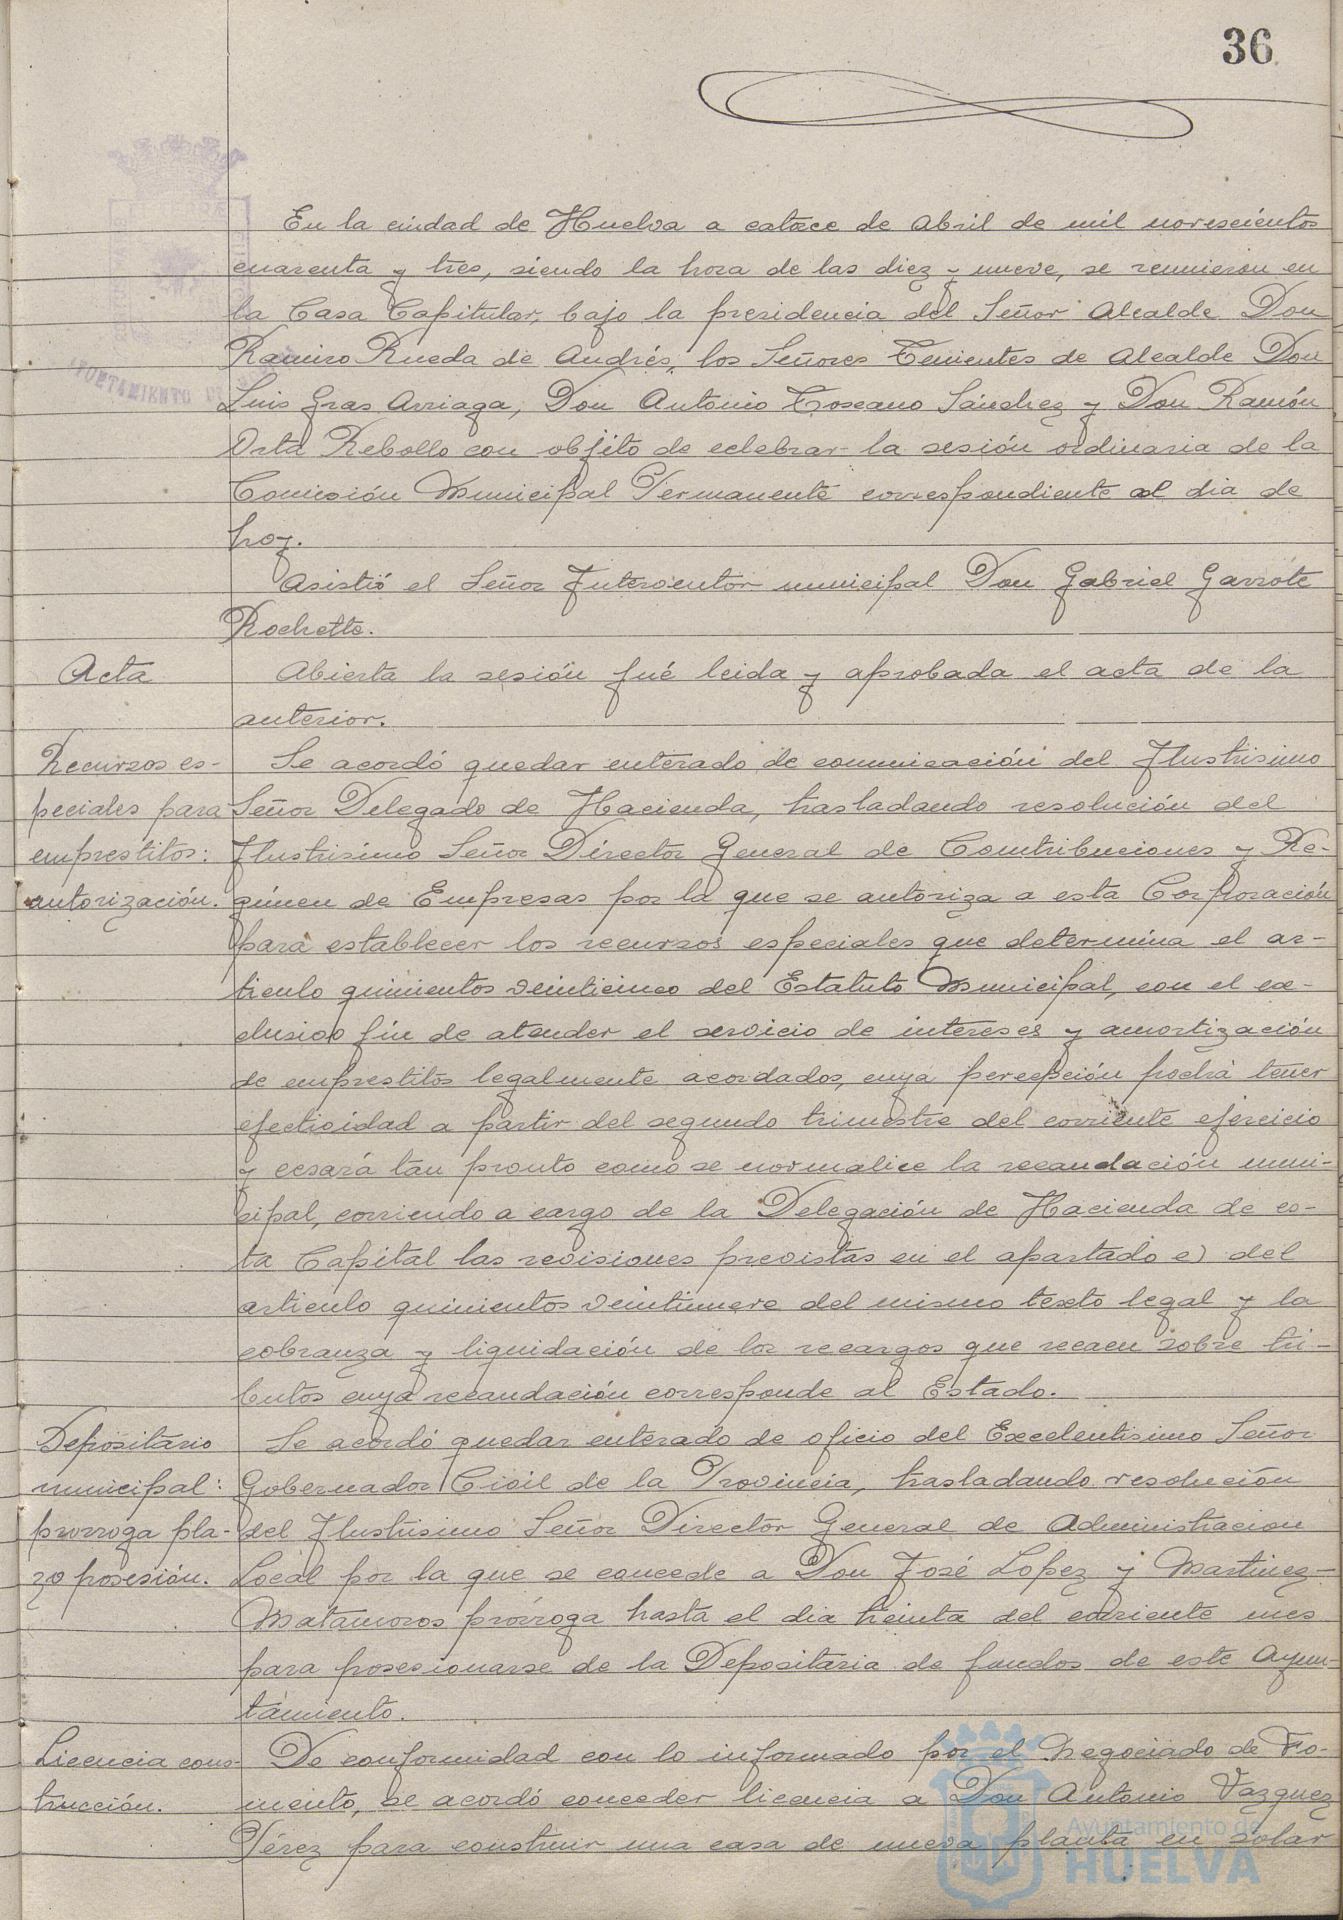 36
En la ciudad de Huelva a catorce de Abril de mil novescientos
cuarenta y tres, siendo la hora de las diez y nueve, se reunieron en
la Casa Capitular, bajo la presidencia del Señor Alcalde Don
Ramiro Rueda de Andrés, los Señores Tenientes de Alcalde Don
Luis Gras Arriaga, Don Antonio Toscano Sánchez y Don Ramón
Orta Rebollo con objéto de celebrar la sesión ordinaria de la
Comisión Municipal Permanente correspondiente al dia de
hoy.
Asistió el Señor Interventor municipal Don Gabriel Garrote
Rochette.
Acta
Abierta la sesión fué leida y aprobada el acta de la
anterior.
Recursos es-
peciales para
emprestitos:
autorización.
Se acordó quedar enterado de comunicación del Ilustrisimo
Señor Delegado de Hacienda, trasladando resolución del
Ilustrisimo Señor Director General de Contribuciones y Ré-
gimen de Empresas por la que se autoriza a esta Corporación
para establecer los recursos especiales que determina el ar-
ticulo quinientos veinticinco del Estatuto Municipal, con el ex-
clusivo fin de atender el servicio de intereses y amortización
de emprestitos legalmente acordados, cuya percepción podrá tener
efectividad a partir del segundo trimestre del corriente ejercicio
y cesará tan pronto como se normalice la recaudación muni-
cipal, corriendo a cargo de la Delegación de Hacienda de es-
ta Capital las revisiones previstas en el apartado e) del
articulo quinientos veintinueve del mismo texto legal y la
cobranza y liquidación de los recargos que recaen sobre tri-
butos cuya recaudación corresponde al Estado.
Depositario
municipal:
prorroga pla-
zo posesión.
Se acordó quedar enterado de oficio del Excelentisimo Señor
Gobernador Civil de la Provincia, trasladando resolución
del Ilustrisimo Señor Director General de Administracion
Local por la que se concede a Don José Lopez y Martinez-
Matamoros prórroga hasta el dia treinta del corriente mes
para posesionarse de la Depositaria de fondos de este Ayun-
tamiento.
Licencia cons-
trucción.
De conformidad con lo informado por el Negociado de Fo-
mento, se acordó conceder licencia a Don Antonio Vazquez
Pérez para construir una casa de nueva planta en solar
Ayuntamiento de
HUELVA